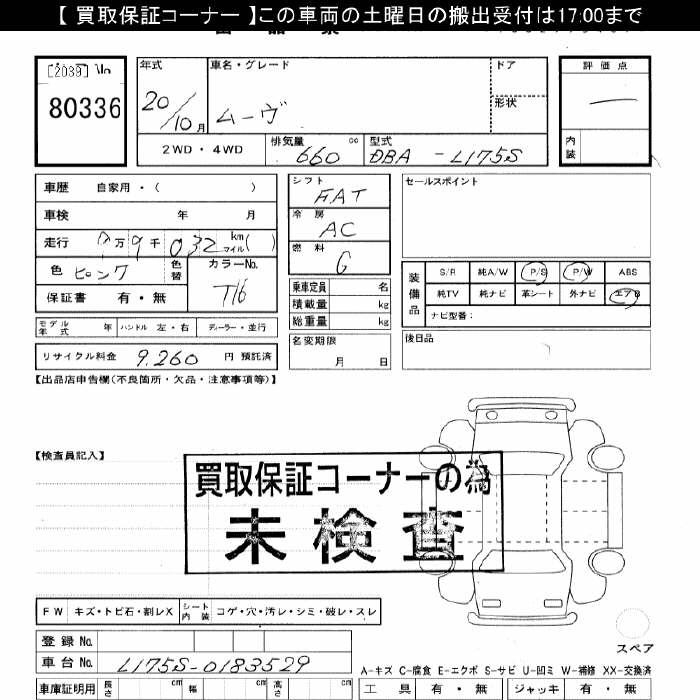 【 買取保証コーナー 】この車両の土曜日の搬出受付は17:00まで
[2039] No
80336
年式 20/10月
車名・グレード ムーヴ
ドア
形状
2WD・4WD
排気量 660 cc
型式 DBA-L175S
評価点
内装
車歴 自家用・( )
車検 年 月
走行 万9千032 km マイル( )
色 ピンク 色替
カラーNo. T16
保証書 有・無
モデル年式 年 ハンドル 左・右 ディーラー・並行
リサイクル料金 9,260 円 預託済
シフト FAT
冷房 AC
燃料 G
乗車定員 名
積載量 kg
総重量 kg
名変期限 月 日
セールスポイント
装備品
S/R 純A/W P/S P/W ABS
純TV 純ナビ 革シート 外ナビ エアB
ナビ型番:
後日品
【出品店申告欄(不良箇所・欠品・注意事項等)】
【検査員記入】
買取保証コーナーの為
未検査
FW キズ・トビ石・割レX シート内装 コゲ・穴・汚レ・シミ・破レ・スレ
スペア
登録 No.
車台 No. L175S-0183529
A-キズ C-腐食 E-エクボ S-サビ U-凹ミ W-補修 XX-交換済
車庫証明用 長さ cm 幅 cm 高さ cm
工具 有・無 ジャッキ 有・無